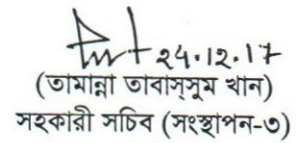 ২৪.১২.১৭
(তামান্না তাবাস্সুম খান)
সহকারী সচিব (সংস্থাপন-৩)